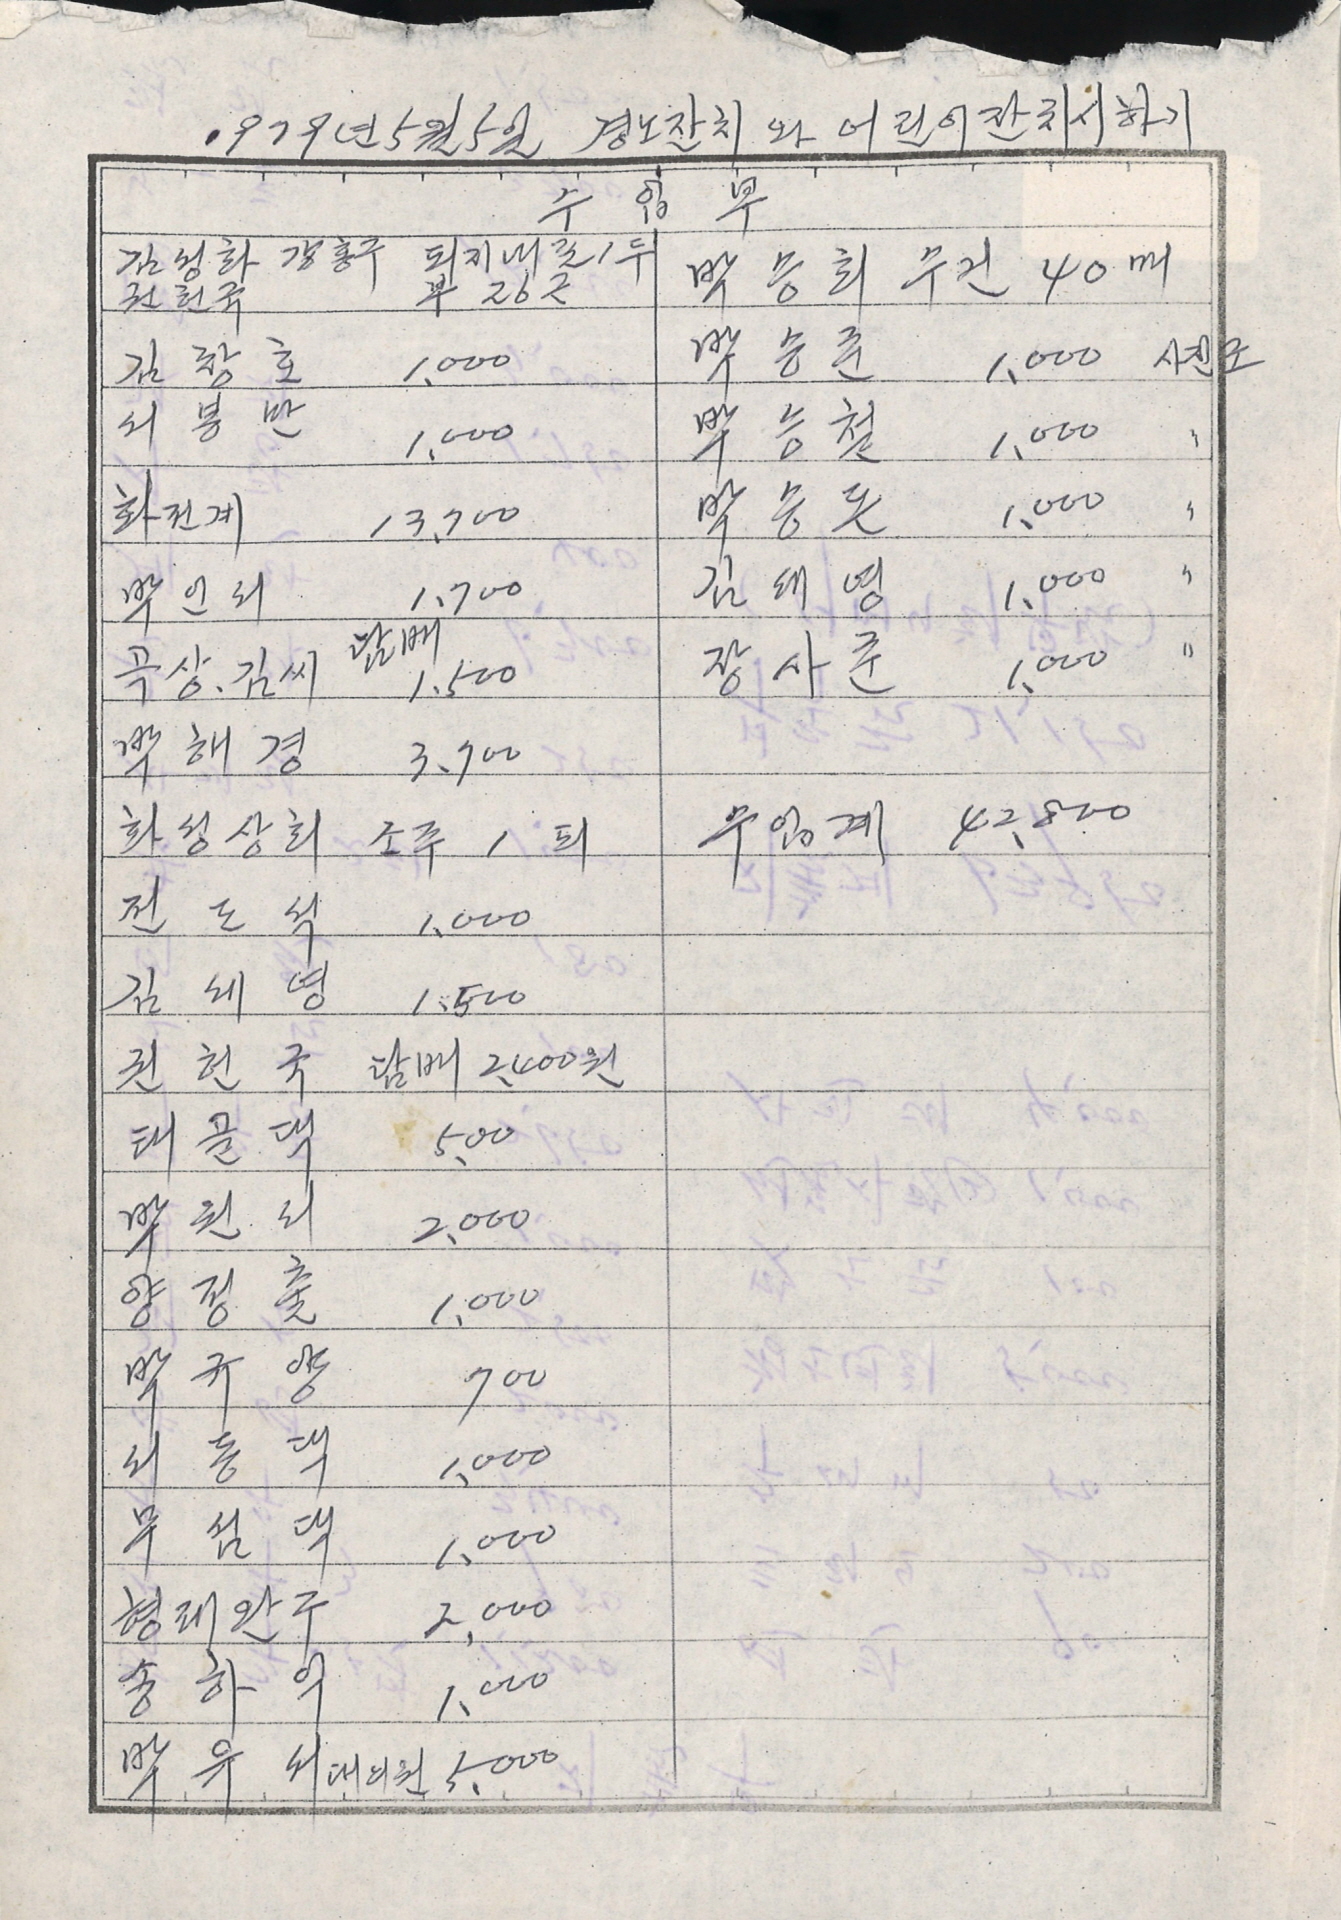 1979년 5월 5일 경노잔치 와 어린이잔치시하기
수입부
김성화 강흥구 퇴지내조 1두
권헌국 부 26근
김창호 1,000
뇌봉반 1,000
화전계 13,700
박인뇌 1,700
곡상.김씨 담배 1,500
박해경 3,700
화성상회 소주 1 퇴
전도석 1,000
김태영 1,500
권헌국 담배 2,400원
태골댁 5,00
박원뇌 2,000
양정출 1,000
박규양 700
뇌동댁 1,000
무섬댁 1,000
형제완구 2,000
송하익 1,000
박우뇌 대의원 5,000
박승희 수건 40매
박승준 1,000 사진조
박승철 1,000 〃
박승돈 1,000 〃
김태영 1,000 〃
장사준 1,000 〃
수입계 42,800